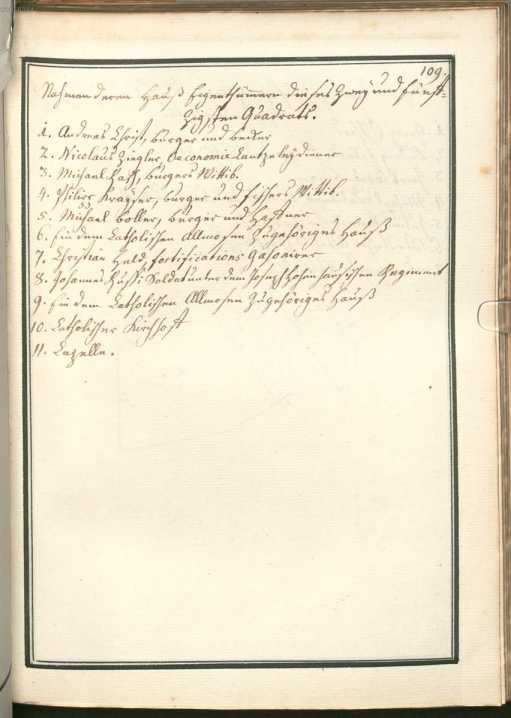 109.
Nahmen deren Hauß Eigenthümern dieses Zwey und funff-
zigsten Quadrats.
1. Andreas Christ, burger und becker
2. Nicolaus Ziegler, Oeconomie Cantzeleydiener
3. Michael Hass, burgers Wittib.
4. Philipp Kayser, burger und fischers Wittib.
5. Michael Boller, burger und Haffner
6. Ein dem Catholischen Allmosen Zugehöriges Hauß
7. Christian Held, fortifications
8. Johannes Soldat unter dem Joseph Hohenhausischen Regiment
9. Ein dem Catholischen Allmosen Zugehöriges Hauß
10. Catholischer Kirchhoff
11. Capelle.